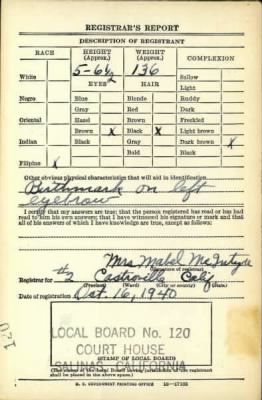 REGISTRAR'S REPORT
DESCRIPTION OF REGISTRANT
RACE HEIGHT (Approx.) WEIGHT (Approx.) COMPLEXION
5-6½ 136
White EYES HAIR Sallow
Light
Negro Blue Blonde Ruddy
Gray Red Dark
Oriental Hazel Brown Freckled
Brown X Black X Light brown
Indian Black Gray Dark brown X
Bald Black
Filipino X
Other obvious physical characteristics that will aid in identification
Birthmark on left
eyebrow
I certify that my answers are true; that the person registered has read or has had
read to him his own answers; that I have witnessed his signature or mark and that
all of his answers of which I have knowledge are true, except as follows:
Mrs Mabel McIntyre
(Signature of registrar)
Registrar for #2 Castroville Calif
(Precinct) (Ward) (City or County) (State)
Date of registration Oct. 16, 1940
LOCAL BOARD No. 120
COURT HOUSE
SALINAS, CALIFORNIA
(STAMP OF LOCAL BOARD)
(The stamp of the Local Board having jurisdiction of the registrant
shall be placed in the above space.)
U. S. GOVERNMENT PRINTING OFFICE 16-17105